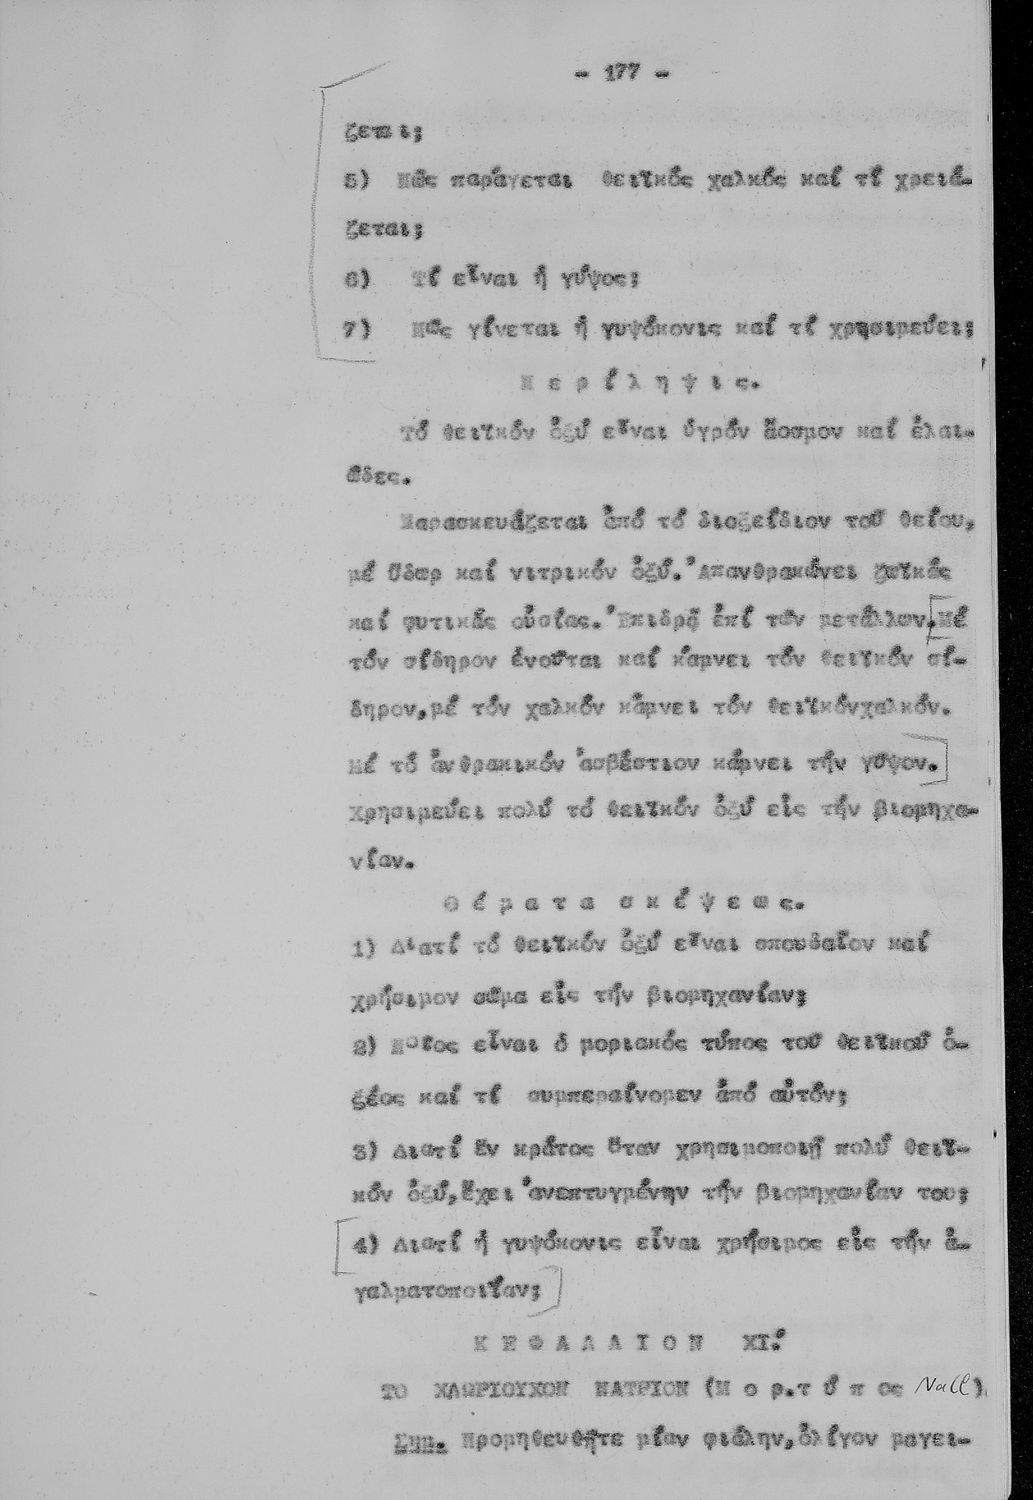 - 177 -
ζεται;
5) Πῶς παράγεται θειϊκός χαλκός καί τί χρειά-
ζεται;
6) Τί εἶναι ἡ γύψος;
7) Πῶς γίνεται ἡ γυψόκονις καί τί χρησιμεύει;
Π ε ρ ί λ η ψ ι ς.
Τό θειϊκόν ὀξύ εἶναι ὑγρόν ἄοσμον καί ἐλαι-
ῶδες.
Παρασκευάζεται ἀπό τό διοξείδιον τοῦ θείου,
μέ ὕδωρ καί νιτρικόν ὀξύ. Ἀπανθρακώνει ζωϊκάς
καί φυτικάς οὐσίας. Ἐπιδρᾷ ἐπί τῶν μετάλλων. Μέ
τόν σίδηρον ἑνοῦται καί κάμνει τόν θειϊκόν σί-
δηρον, μέ τόν χαλκόν κάμνει τόν θειϊκόνχαλκόν.
Μέ τό ἀνθρακικόν ἀσβέστιον κάμνει τήν γῦψον.
Χρησιμεύει πολύ τό θειϊκόν ὀξύ εἰς τήν βιομηχα-
νίαν.
Θ έ μ α τ α σ κ έ ψ ε ω ς.
1) Διατί τό θειϊκόν ὀξύ εἶναι σπουδαῖον καί
χρήσιμον σῶμα εἰς τήν βιομηχανίαν;
2) Ποῖος εἶναι ὁ μοριακός τύπος τοῦ θειϊκοῦ ὀ-
ξέος καί τί συμπεραίνομεν ἀπό αὐτόν;
3) Διατί ἕν κράτος ὅταν χρησιμοποιῇ πολύ θειϊ-
κόν ὀξύ, ἔχει ἀνεπτυγμένην τήν βιομηχανίαν του;
4) Διατί ἡ γυψόκονις εἶναι χρήσιμος εἰς τήν ἀ-
γαλματοποιΐαν;
Κ Ε Φ Α Λ Α Ι Ο Ν ΧΙ.
ΤΟ ΧΛΩΡΙΟΥΧΟΝ ΝΑΤΡΙΟΝ (Μ ο ρ. τ ύ π ος NaCl).
Σημ. Προμηθευθῆτε μίαν φιάλην, ὀλίγον μαγει-